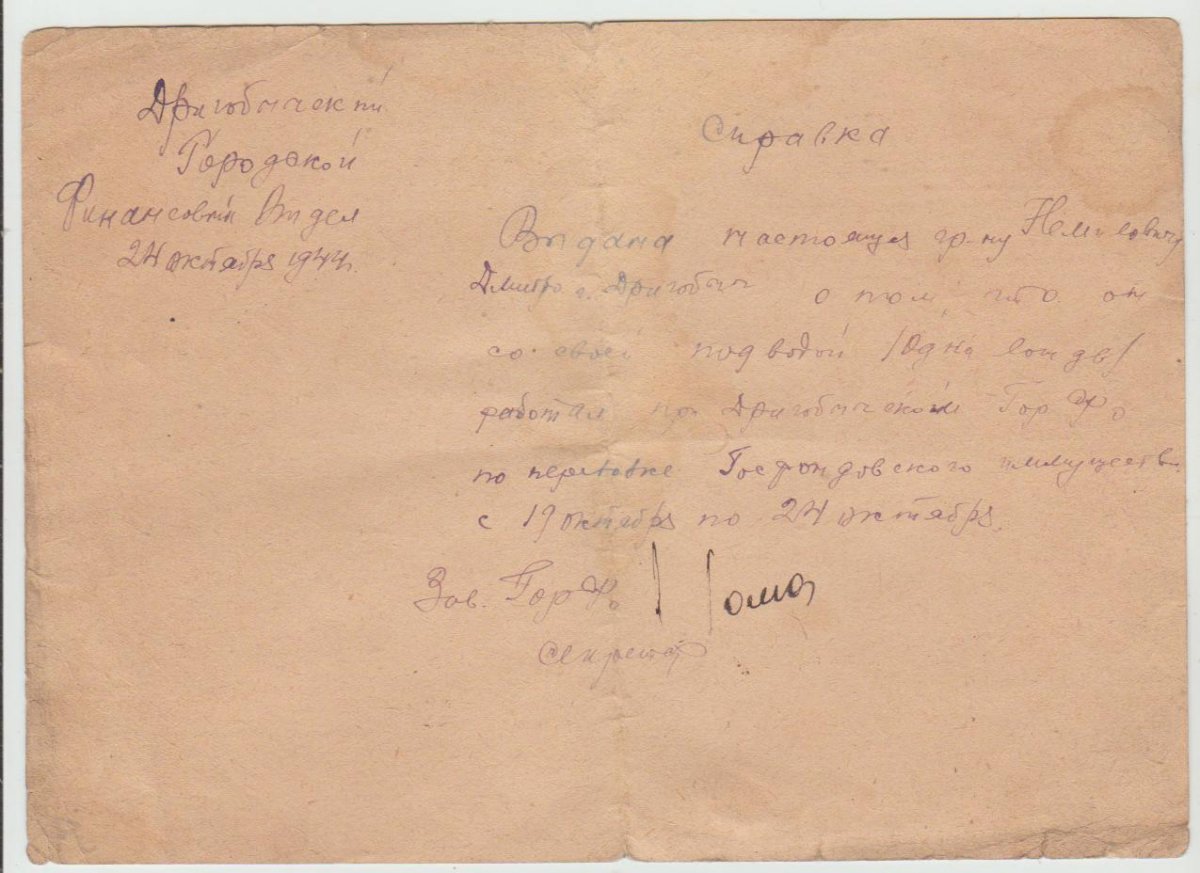 Дригобыческий
Городской
Финансовый Отдел
24 октября 1944 г.
Справка
Выдана настоящая гр-ну Немиловичу
Дмитро г. Дригобыч о том, что он
со своей подводой /одна лошадь/
работал по Дригобыческом ГорФо
по перевозке Госфондовского имущества
с 19 октября по 24 октября.
Зав. ГорФо
Секретарь